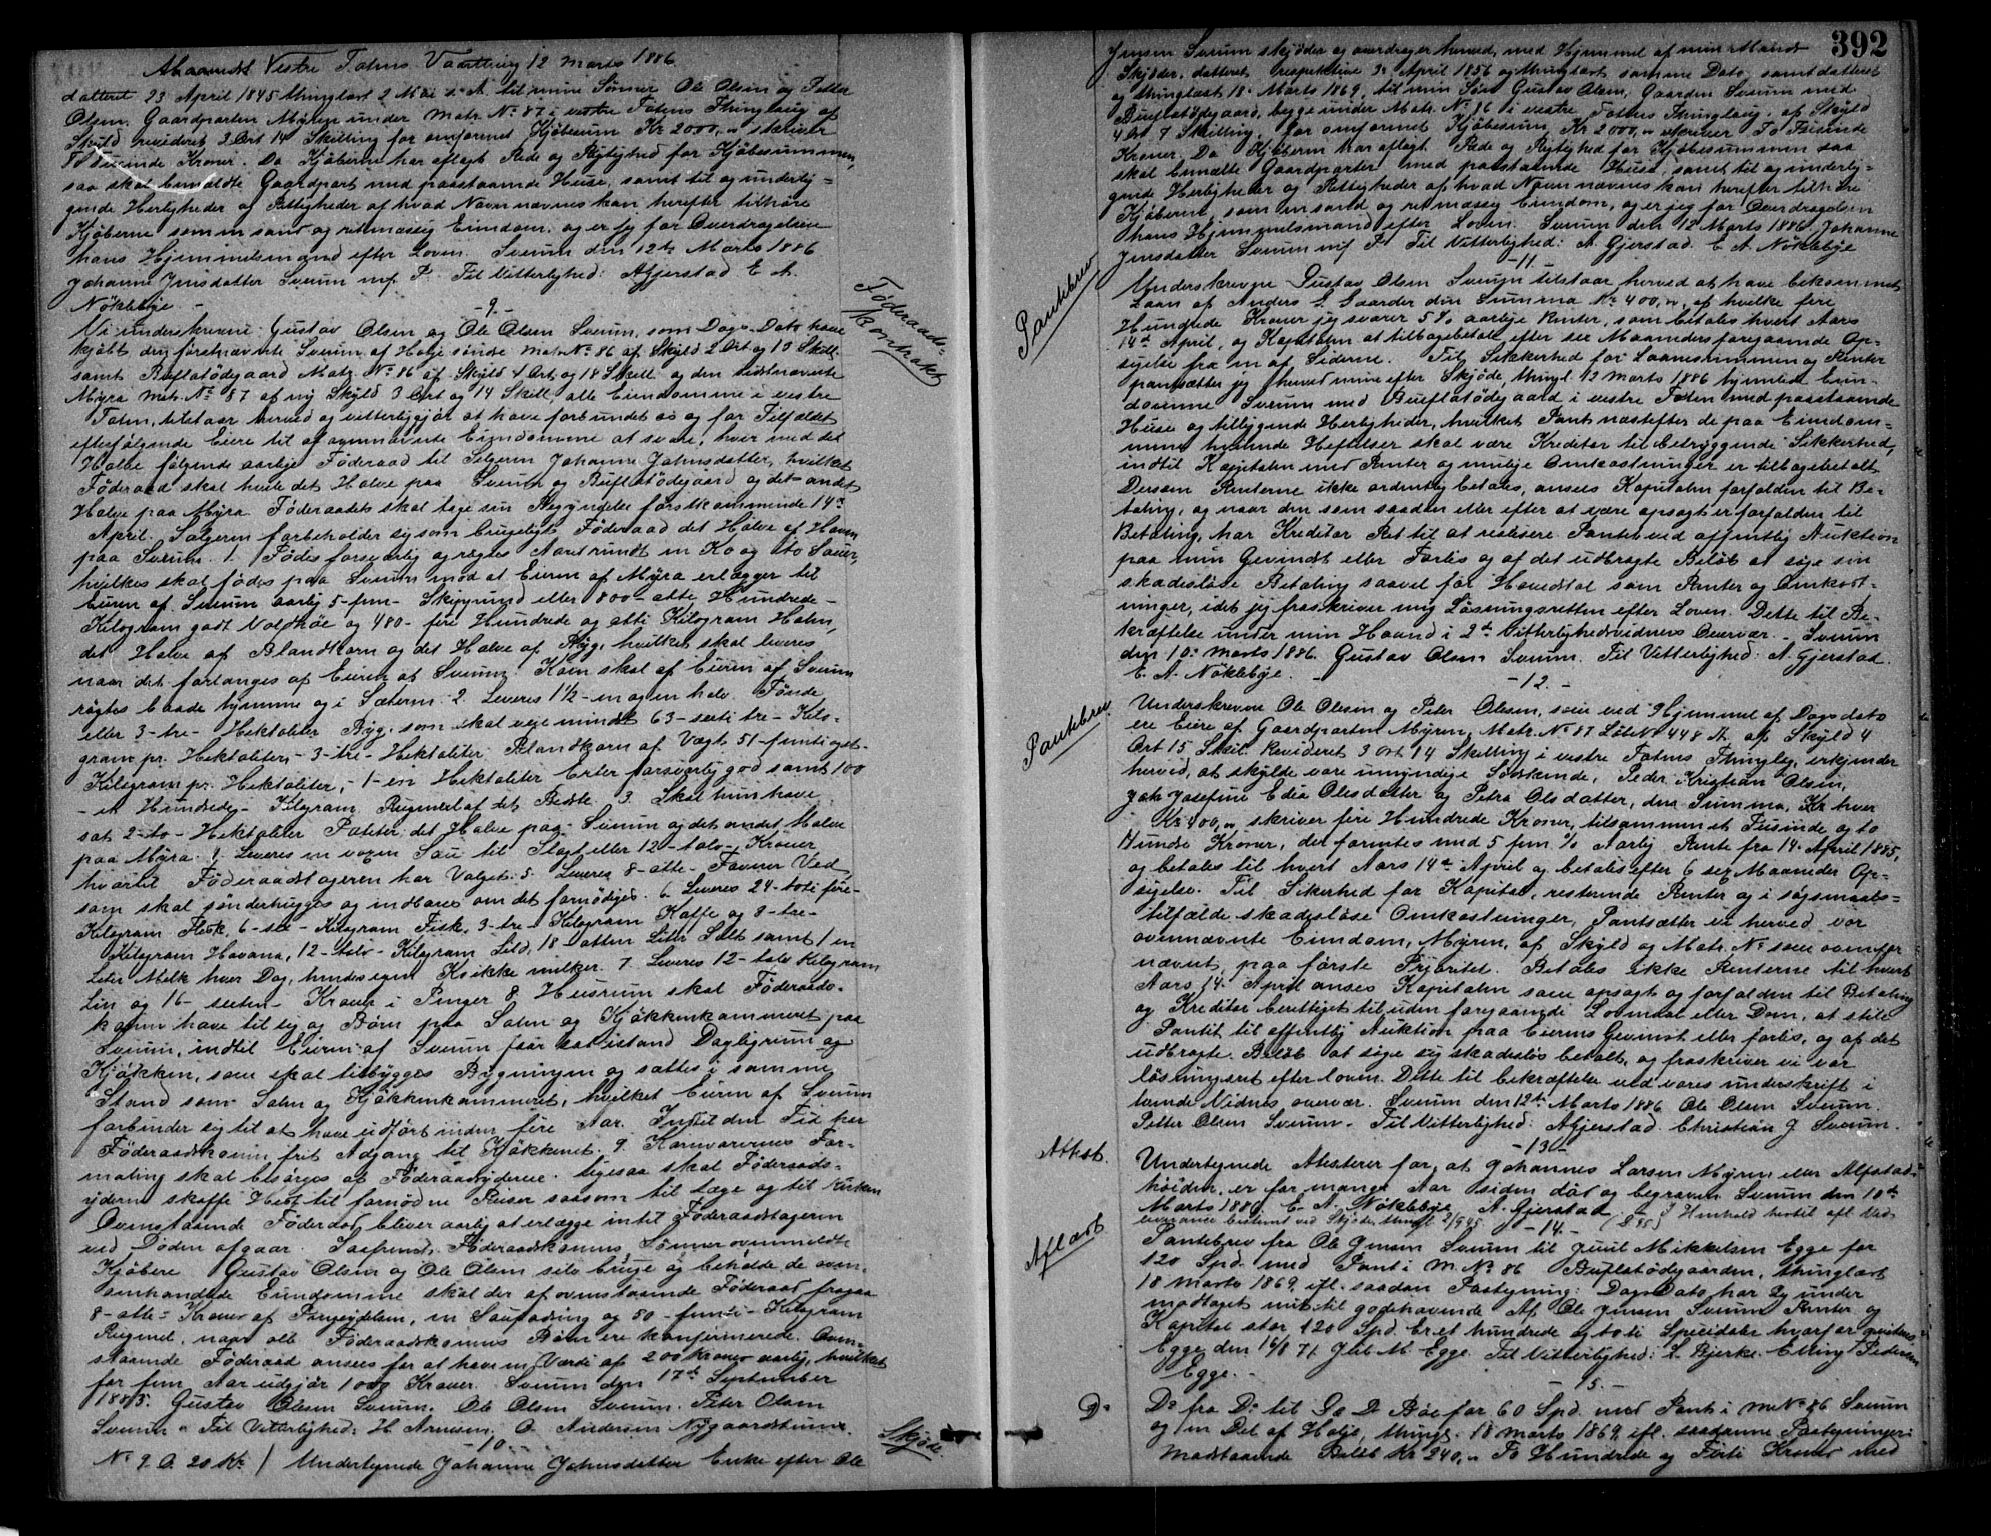 Abaamdt Vestre Totens Vaarthing 12 Marts 1886
datteret 23 April 1845 thinglæst 2 Mai s. A. til mine Sønner Ole Olsen og Petter
Olsen, Gaardparten Myren under Matr No 87 i vestre Totens Thinglaug af
Skyld revideret 3 Ort 14 Skilling for omforenet Kjøbesum Kr 2000,00 skriver
To tusinde Kroner. Da Kjøberne har aflagt Rede og Rigtighed for Kjøbesummen,
saa skal bemældte Gaardpart med paastaaende Huse, samt til og underlig-
gende Herligheder og Rettigheder af hvad Navn nævnes kan herefter tilhøre
Kjøberne som en sand og retmæssig Eiendom, og er jeg for Overdragelsen
hans Hjemmelsmand efter Loven. Sveum den 12te Marts 1886
Johanne Jensdatter Sveum m/ P. Til Vitterlighed: A. Gjerstad E. A.
Nøklebye. -
-9-
Føderaads-
kontrakt
Vi underskrevne Gustav Olsen og Ole Olsen Sveum, som Dags Dato have
kjøbt, den førstnævnte Sveum af Holje søndre Matr No 86 af Skyld 2 Ort og 13 Skill.
samt Buflatødegaard Matr. No 86 af Skyld 1 Ort og 18 Skill. og den sidstnævnte
Myra Matr. No 87 af ny Skyld 3 Ort og 14 Skill, alle Eiendomme i vestre
Toten, tilstaar herved og vitterliggjør at have forbundet os og for Tilfældet
efterfølgende Eiere til af ovennævnte Eiendomme at svare, hver med det
Halve følgende aarlige Føderaad til Selgeren Johanne Jahnsdatter, hvilket
Føderaad skal hvile det Halve paa Sveum og Buflatødegaard og det andet
Halve paa Myra. Føderaadet skal tage sin Begyndelse førstkommende 14de
April. Sælgeren forbeholder sig som brugeligt Føderaad det Halve af Haven
paa Sveum. 1. Fødes forsvarlig og røgtes Aaret rundt en Ko og to Sauer,
hvilkes skal fødes paa Sveum mod at Eieren af Myra erlægger til
Eieren af Sveum aarlig 5-fem- Skippund eller 800 otte Hundrede-
Kilogram godt Voldhøe og 480- fire Hundrede og otti Kilogram Halm,
det Halve af Blandkorn og det Halve af Byg, hvilket skal leveres
naar det forlanges af Eieren af Sveum. Koen skal af Eieren af Sveum
røgtes baade hjemme og i Sæteren. 2. Leveres 1 1/2 - en og en halv Tønde
eller 3-tre- Hektoliter Byg, som skal veie mindst 63- seeti tre- Kilo-
gram pr. Hektoliter, - 3-tre- Hektoliter Blandkorn af Vægt 51-femti et-
Kilogram pr. Hektoliter, - 1-en Hektoliter Erter forsvarlig god samt 100
- et Hundrede- Kilogram Rugmel af det Bedste. 3. Skal hun have
sat 2-to- Hektoliter Poteter, det Halve paa Sveum og det andet Halve
paa Myra. 4. Leveres en voxen Sau til Slagt eller 12-tolv- Kroner
hvortil Føderaadstageren har Valget. 5. Leveres 8-otte- Favner Ved,
som skal sønderhugges og indbæres om det fornødiges. 6. Leveres 24-toti fire-
Kilogram Flesk, 6-sex- Kilogram Fisk, 3-tre- Kilogram Kaffe og 3-tre-
Kilogram Havana, 12-tolv- Kilogram Sild, 18-atten Liter Salt samt 1 en
Liter Melk hver Dag, hendes egen Ko ikke melker. 7. Leveres 12-tolv Kilogram
Lin og 16- sexten- Kroner i Penger. 8. Husrum skal Føderaads-
konen have til sig og Børn paa Salen og Kjøkkenkammeret paa
Sveum, indtil Eieren af Sveum faar sat istand Dagligrum og
Kjøkken, som skal tilbygges Bygningen og sættes i samme
Stand som Salen og Kjøkkenkammeret, hvilket Eieren af Sveum
forbinder sig til at have udført inden fire Aar. Indtil den Tid har
Føderaadskonen frit Adgang til Kjøkkenet. 9. Kornvarernes For-
maling skal besørges af Føderaadsyderne. ligesaa skal Føderaads-
yderne skaffe Hest til fornødne Reiser saasom til Læge og til Kirken
Ovenstaaende Føderaad bliver aarlig at erlægge indtil Føderaadstageren
ved Døden afgaar. Saafremt Føderaadskonens Sønner ovenmeldte
Kjøbere Gustav Olsen og Ole Olsen selv bruge og beholde de oven-
omhandlede Eiendomme skal der af ovenstaaende Føderaad fragaa
8-otte- Kroner af Pengeydelsen, en Saufødning og 50 -femti- Kilogram
Rugmel, naar alle Føderaadskonens Børn ere konfirmerede. Oven-
staaende Føderaad ansees for at have en Værdi af 200 Kroner aarlig, hvilket
for fem Aar udgjør 1000 Kroner. Sveum den 17de September
1885. Gustav Olsen Sveum. Ole Olsen Sveum. Peter Olsen
Sveum. Til Vitterlighed: H Arnesen, O. Andersen Nygaardstuen.
-10-
Skjøde.
No 9. O. 20 Kr. / Undertegnede Johanne Jahnsdatter Enke efter Ole
392
Jensen Sveum skjøder og overdrager herved, med Hjemmel af min Mands
Skjøder, datteret respektive 3. April 1856 og thinglæst samme Dato, samt datteret
og thinglæst 18. Marts 1869, til min Søn Gustav Olsen, Gaarden Sveum med
Buflatødegaard, begge under Matr. No 86 i vestre Totens Thinglaug, af Skyld
4 Ort 7 Skilling, for omforenet Kjøbesum Kr 2000,00 skriver To Tusinde
Kroner. Da Kjøberen har aflagt Rede og Rigtighed for Kjøbesummen saa
skal bemælte Gaardparter med paastaaende Huse, samt til og underlig-
gende Herligheder og Rettigheder af hvad Navn nævnes kan herefter tilhøre
Kjøberne, som en sand og retmæssig Eiendom, og er jeg for Overdragelsen
hans Hjemmelsmand efter Loven. Sveum den 12 Marts 1886. Johanne
Jensdatter Sveum m/ P. Til Vitterlighed: A. Gjerstad. E. A. Nøklebye
-11-
Pantebrev
Underskrevne Gustav Olsen Sveum tilstaar herved at have bekommet
Laan af Anders L. Gaarder den Summa Kr 400,00, af hvilke fire
Hundrede Kroner jeg svarer 5 % aarlige Renter, som betales hvert Aars
14de April, og Kapitalen at tilbagebetale efter sex Maaneders foregaaende Op-
sigelse fra en af Siderne. Til Sikkerhed for Laanesummen og Renter
pantsætter jeg herved mine efter Skjøde, thingl. 12 Marts 1886 hjemlede Eien-
domme Sveum med Buflatødegaard i vestre Toten med paastaaende
Huse og tilliggende Herligheder, hvilket Pant næstefter de paa Eiendom-
mene hvilende Heftelser skal være Kreditor til betryggende Sikkerhed,
indtil Kapitalen med Renter og mulige Omkostninger er tilbagebetalt.
Dersom Renterne ikke ordentlig betales, ansees Kapitalen forfalden til Be-
taling, og naar den som saaden eller efter at være opsagt er forfalden til
Betaling, har Kreditor Ret til at realisere Pantet ved offentlig Auktion
paa min Gevindst eller Forlis og af det udbragte Beløb at søge sin
skadesløse Betaling saavel for Hovedstol som Renter og Omkost-
ninger, idet jeg fraskriver mig Løsningsretten efter Loven. Dette til Be-
kræftelse under min Haand i 2de Vitterlighedsvidners Overvær. - Sveum
den 10. Marts 1886. Gustav Olsen Sveum. Til Vitterlighed: A. Gjerstad.
E. A. Nøklebye. -
-12.-
Pantebrev.
Underskrevne Ole Olesen og Peter Olesen, som ved Hjemmel af Dags dato
ere Eiere af Gaardparten Myren, Matr. No 87 LøbeNo 448 A. af Skyld 4
Ort 15 Skil. Revideret 3 Ort 14 Skilling i vestre Totens Thinglag, erkjender
herved, at skylde vore umyndige Sødskende, Peder Kristian Olsen,
Joh Josefine Edia Olsdatter og Petra Olsdatter, den Summa, Kr hver
Kr 400,00 skriver fire Hundrede Kroner, tilsammen et Tusinde og to
Hundre Kroner, der forrentes med 5 fem % Aarlig Rente fra 14. April 1885,
og betales til hvert Aars 14de April og betales efter 6 sex Maaneder Op-
sigelse. Til Sikerhed for Kapital, resterende Renter og i søgsmaals-
tilfælde skadesløse Omkostninger, Pantsætter vi herved vor
ovennævnte Eiendom, Myren, af Skyld og Matr. No som ovenfor
nævnt, paa første Prioritet. Betales ikke Renterne til hvert
Aars 14. April anses Kapitalen som opsagt og forfalden til Betaling
og Kreditor berettiget til uden foregaaende Lovmaal eller Dom, at stille
Pantet til offentlig Auktion paa Eierens Gevinst eller forlis, og af det
udbragte Beløb at søge sig skadesløs betalt, og fraskriver vi vor
løsningsret efter loven. Dette til bekræftelse ved vores underskrift i
tvende Vidners overvær. Sveum den 12te Marts 1886. Ole Olsen Sveum.
Petter Olsen Sveum. Til Vitterlighed: A Gjerstad. Christian J Sveum.
-13-
Attest.
Undertegnede Atesterer for, at Johannes Larsen Myren eller Alfstad-
høiden, er for mange Aar siden død og begraven. Sveum den 10de
Marts 1886. E. A. Nøklebye A. Gjerstad. I Henhold hertil afl. Ved-
-14.-
Aflæst
Pantebrev fra Ole Jensen Sveum til Juul Mikkelsen Egge for
120 Spd. med Pant i M. No 86 Buflatødegaarden, thinglæst
18 Marts 1869, efl. saadan Paategning: Dags Dato har jeg under
modtaget mit til godehavende Af Ole Jensen Sveum Renter og
Kapital stor 120 Spd. Er et hundrede og toti Speciedaler hvorfor qvitteres
Egge den 16/8 71. Juel M. Egge. Til Vitterlighed: L. Bjerke. Elling Pedersen
Egge. -
-15.-
Do
Do fra Do til Do Do Bøe for 60 Spd. med Pant i M No 86 Sveum
og en Del af Holje, thingl. 18 Marts 1869, efl. saadanne Paategninger:
Modstaaende Beløb Kr 240,00 To Hundrede og Førti Kroner med